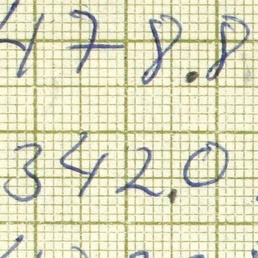 478.8
342.0